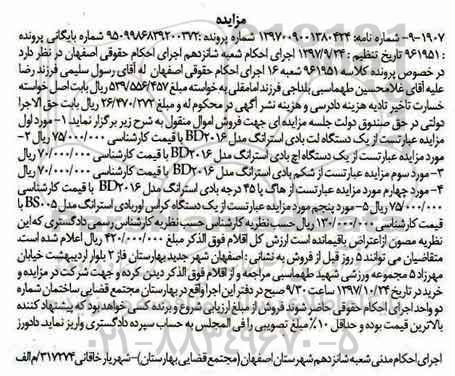 مزایده
۱۹۰۷-۹- شماره نامه: ۱۳۹۷۰۰۹۰۰۱۳۸۰۴۲۴ شماره پرونده :۹۵۰۹۹۸۶۸۳۹۲۰۰۳۷۲ شماره بایگانی پرونده
: ۹۶۱۹۵۱ تاریخ تنظیم : ۱۳۹۷/۹/۲۴ اجرای احکام شعبه شانزدهم اجرای احکام حقوقی اصفهان در نظر دارد
در خصوص پرونده کلاسه ۹۶۱۹۵۱ شعبه ۱۶ اجرای احکام حقوقی اصفهان له آقای رسول سلیمی فرزند رضا
علیه آقای غلامحسین طهماسبی بلداجی فرزند امامقلی به خواسته مبلغ ۵۳۹/۵۵۶/۴۵۷ ریال بابت اصل خواسته
خسارت تاخیر تادیه هزینه دادرسی و هزینه نشر آگهی در محکوم له و مبلغ ۲۶/۴۷۰/۳۷۲ ریال بابت حق الاجرا
دولتی در حق صندوق دولت جلسه مزایده ای جهت فروش اموال منقول به شرح زیر برگزار نماید. ۱- مورد اول
مزایده عبارتست از یک دستگاه لت بادی استرانگ مدل BD۲۰۱۶ با قیمت کارشناسی ۷۵/۰۰۰/۰۰۰ ریال ۲-
مورد مزایده عبارتست از یک دستگاه اچ بادی استرانگ مدل BD۲۰۱۶ با قیمت کارشناسی ۷۰/۰۰۰/۰۰۰ ریال
۳- مورد سوم مزایده عبارتست از شکم بادی استرانگ مدل BD۲۰۱۶ با قیمت کارشناسی ۷۰/۰۰۰/۰۰۰ ریال
۴- مورد چهارم مورد مزایده عبارتست از هاگ پا ۴۵ درجه بادی استرانگ مدل BD۲۰۱۶ با قیمت کارشناسی
۷۵/۰۰۰/۰۰۰ ریال ۵- مورد پنجم مورد مزایده عبارتست از یک دستگاه کراس اوربادی استرانگ مدل BS۰۰۵ با
قیمت کارشناسی ۱۳۰/۰۰۰/۰۰۰ ریال حسب نظریه کارشناس حسب نظریه کارشناس رسمی دادگستری که این
نظریه مصون از اعتراض باقیمانده است ارزش کل اقلام فوق الذکر مبلغ ۴۲۰/۰۰۰/۰۰۰ ریال اعلام شده است.
متقاضیان می توانند ۵ روز قبل از فروش به نشانی : اصفهان شهر جدید بهارستان فاز ۲ بلوار اردیبهشت خیابان
مهرزاد ۵ مجموعه ورزشی شهید طهماسبی مراجعه و از اقلام فوق الذکر دیدن کرده و جهت شرکت در مزایده و
خرید در تاریخ ۱۳۹۷/۱۰/۲۴ ساعت ۹/۳۰ صبح در دفتر این اجرا واقع در بهارستان مجتمع قضایی ساختمان شماره
دو واحد اجرای احکام حقوقی حاضر شوند فروش از مبلغ ارزیابی شروع و برنده کسی خواهد بود که پیشنهاد کننده
بالاترین قیمت بوده و حداقل ۱۰٪ مبلغ تصویبی را فی المجلس به حساب سپرده دادگستری واریز نماید دادورز
اجرای احکام مدنی شعبه شانزدهم شهرستان اصفهان (مجتمع قضایی بهارستان)-شهریار خاقانی ۳۱۷۲۷۴/م الف
۰۲۱-۸۸۳۴۹۶۷۰-۵